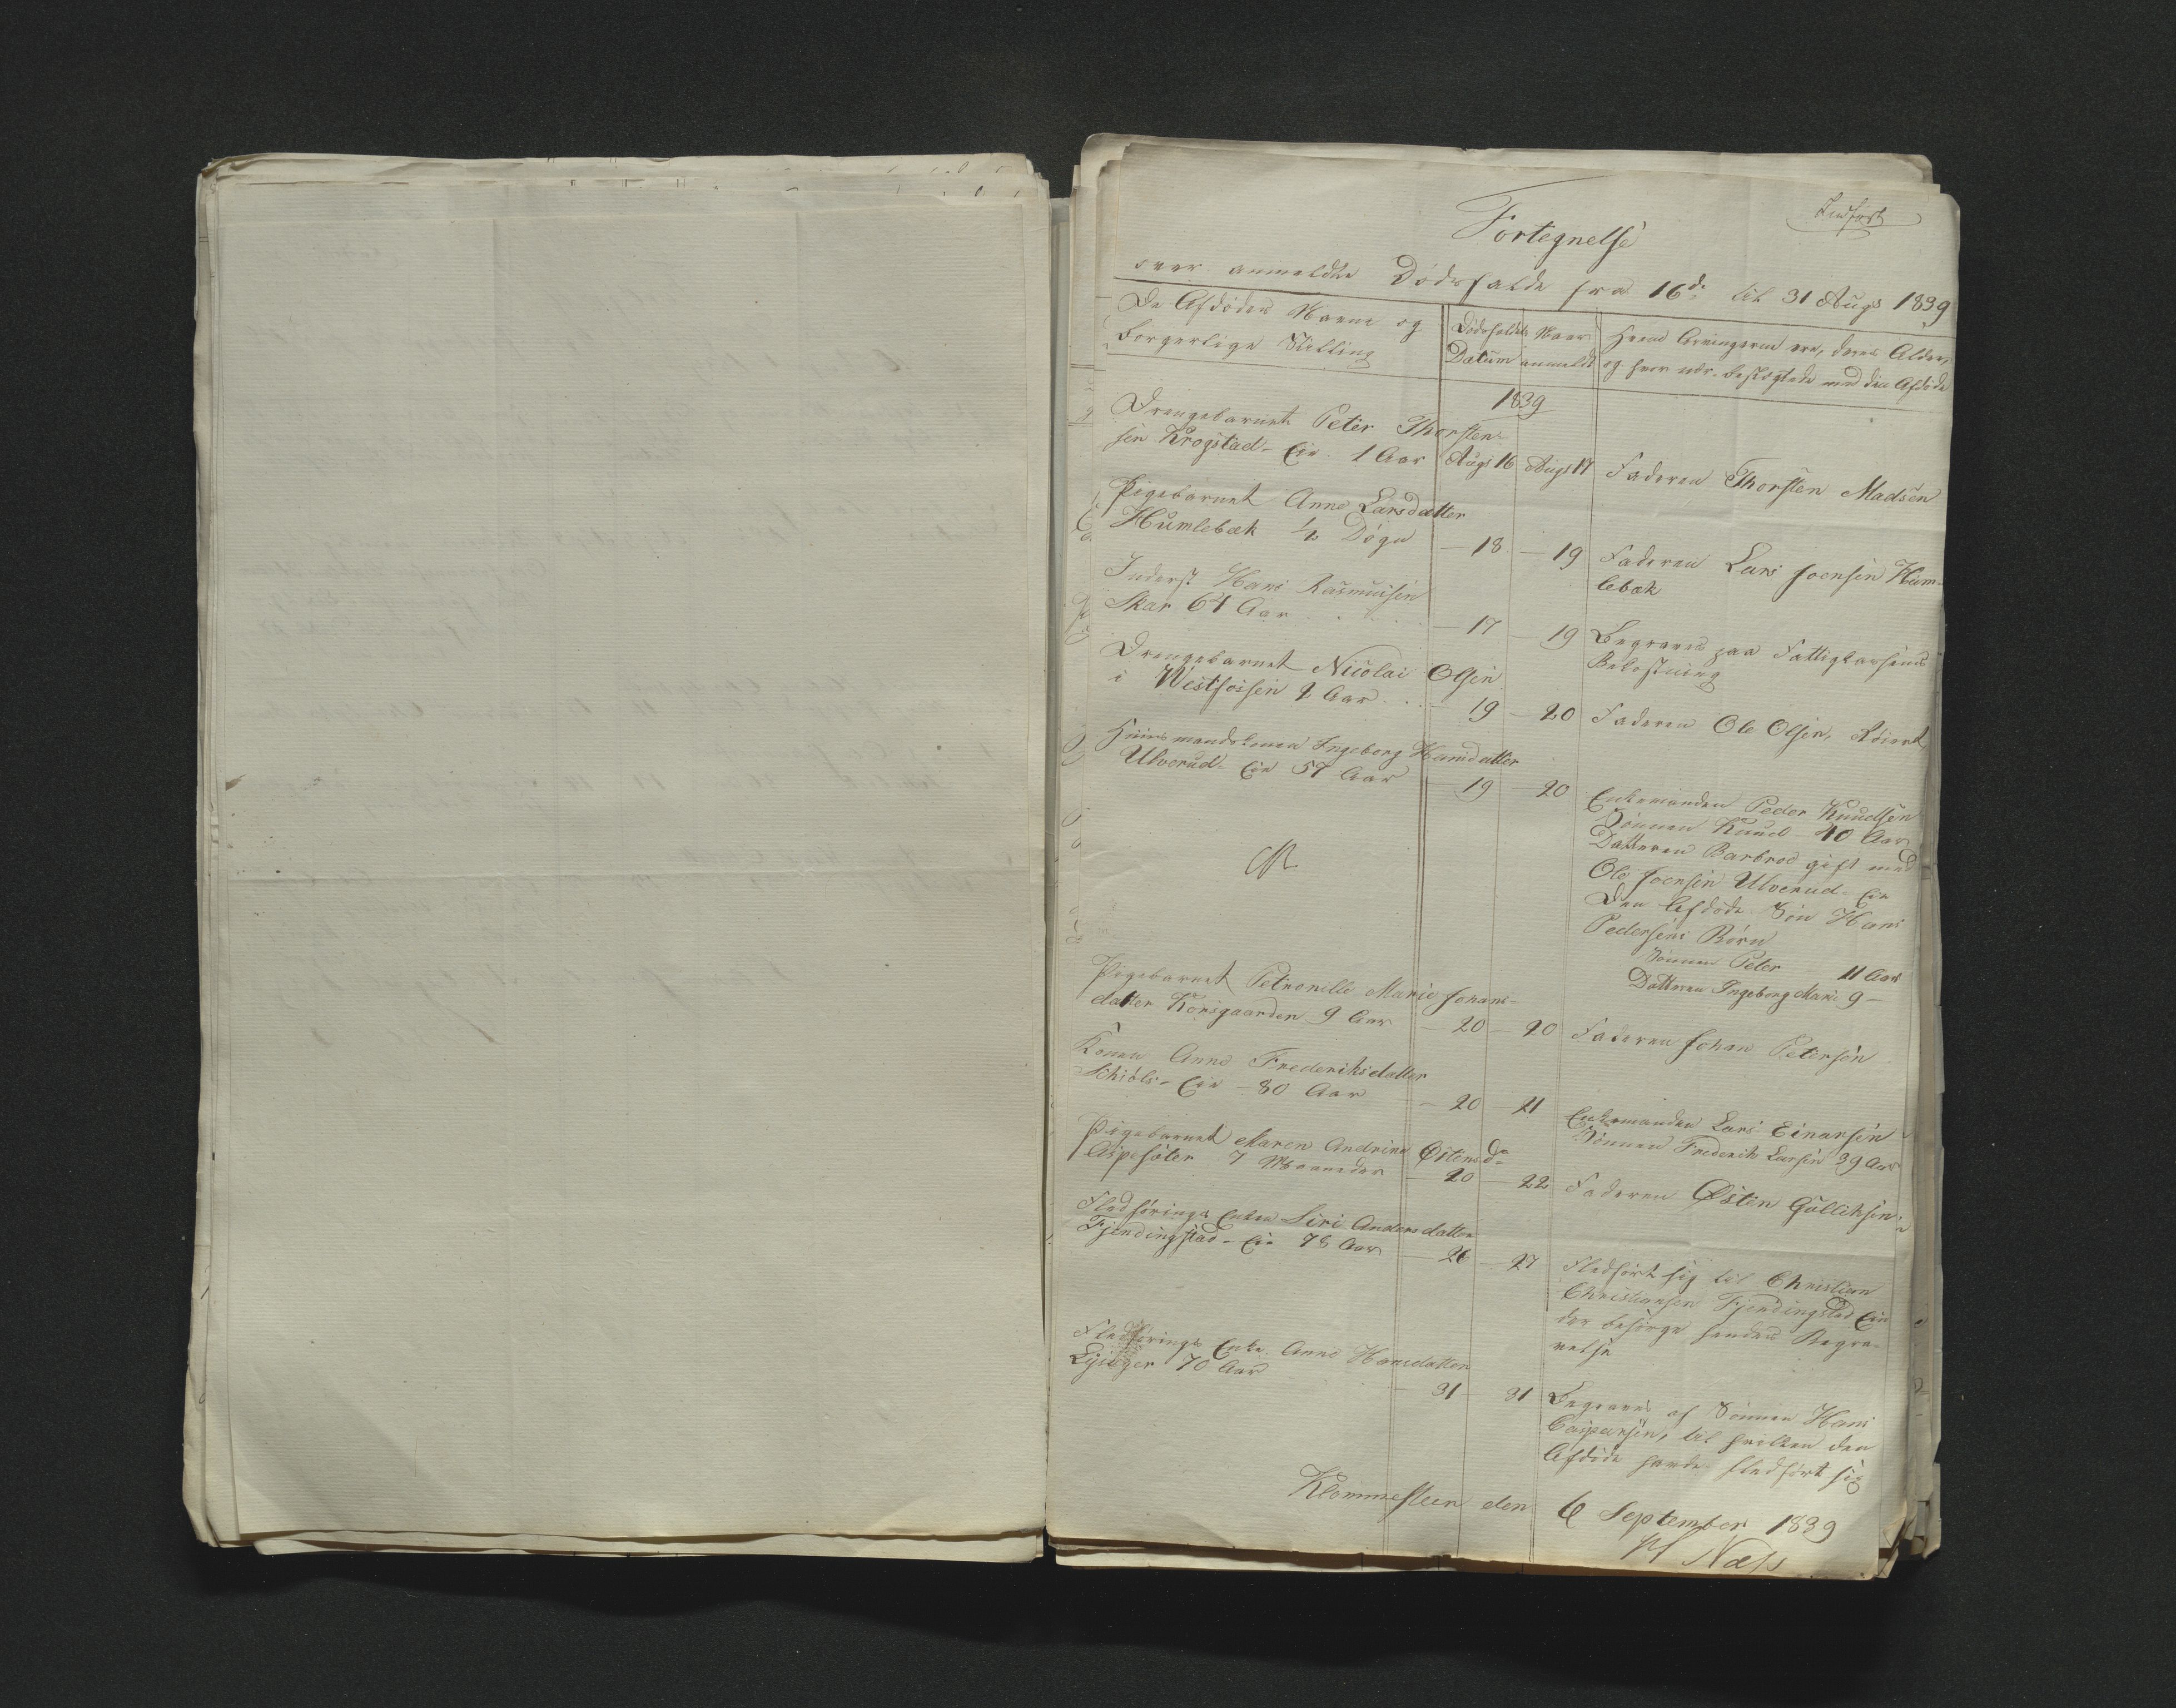 Indført
Fortegnelse
over anmeldte Dødsfalde fra 16de til 31 Augs 1839
De Afdødes Navne og
borgerlige Stilling
Dødsfaldets
Datum
Naar
anmeldt
Hvem Arvingerne ere, deres Alder,
og hvor nær beslægtede med den Afdøde
1839
Drengebarnet Peter Thorsten-
sen Krogstad- Eie 1 Aar Augs 16 Augs 17 Faderen Thorsten Madsen
Pigebarnet Anne Larsdatter
Humlebæk ½ Døgn — 18 — 19 Faderen Lars Joensen Hum-
lebæk
Inderst Hans Rasmusen
Skar 64 Aar — 17 — 19 Begraves paa Fattigkassens
Bekostning
Drengebarnet Nicolai Olsen
i Westfossen 2 Aar — 19 — 20 Faderen Ole Olsen,
Huusmandskonen Ingeborg Hansdatter
Ulverud- Eie 57 Aar — 19 — 20 Enkemanden Peder Knudsen
Sønnen Knud 40 Aar
Datteren Barbroe gift med
Ole Joensen Ulverud- Eie
Den Afdøde Søn Hans
Pedersens Børn
Sønnen Peter 11 Aar
Datteren Ingeborg Marie 9 —
Pigebarnet Petronelle Marie Johans-
datter Korsgaarden 9 Aar — 20 — 20 Faderen Johan Petersen
Konen Anne Frederiksdatter
Schiøls- Eie - 80 Aar — 20 — 21 Enkemanden Lars Einarsen
Sønnen Frederik Larsen 39 Aar
Pigebarnet Maren Andrine Østensdr
Aspesæter 7 Maaneder — 20 — 22 Faderen Østen Gulliksen
Fledførings Enke Siri Andersdatter
Fjendingstad- Eie 78 Aar — 26 — 27 Fledført sig til Christian
Christiansen Fjendingstad Eie
der besørge hendes Begra-
velse
Fledførings Enke Anne Hansdatter
70 Aar — 31 — 31 Begraves af Sønnen Hans
Caspersen, til hvilken den
Afdøde havde fledført sig
Klommesteen den 6 September 1839
Næss